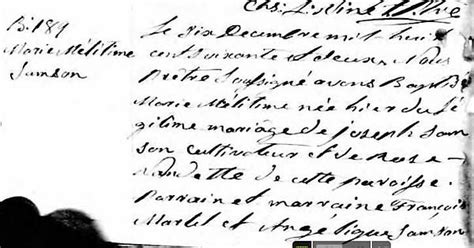 B. 189
Marie Mélitime
Samson
Le six Decembre mil huit
cent soixante et deux, Nous
Prêtre soussigné avons Baptisé
Marie Mélitime née hier du lé
gitime mariage de Joseph Sam
son cultivateur et de Rose
de cette paroisse.
Parrain et marraine François
Martel et Angélique Samson